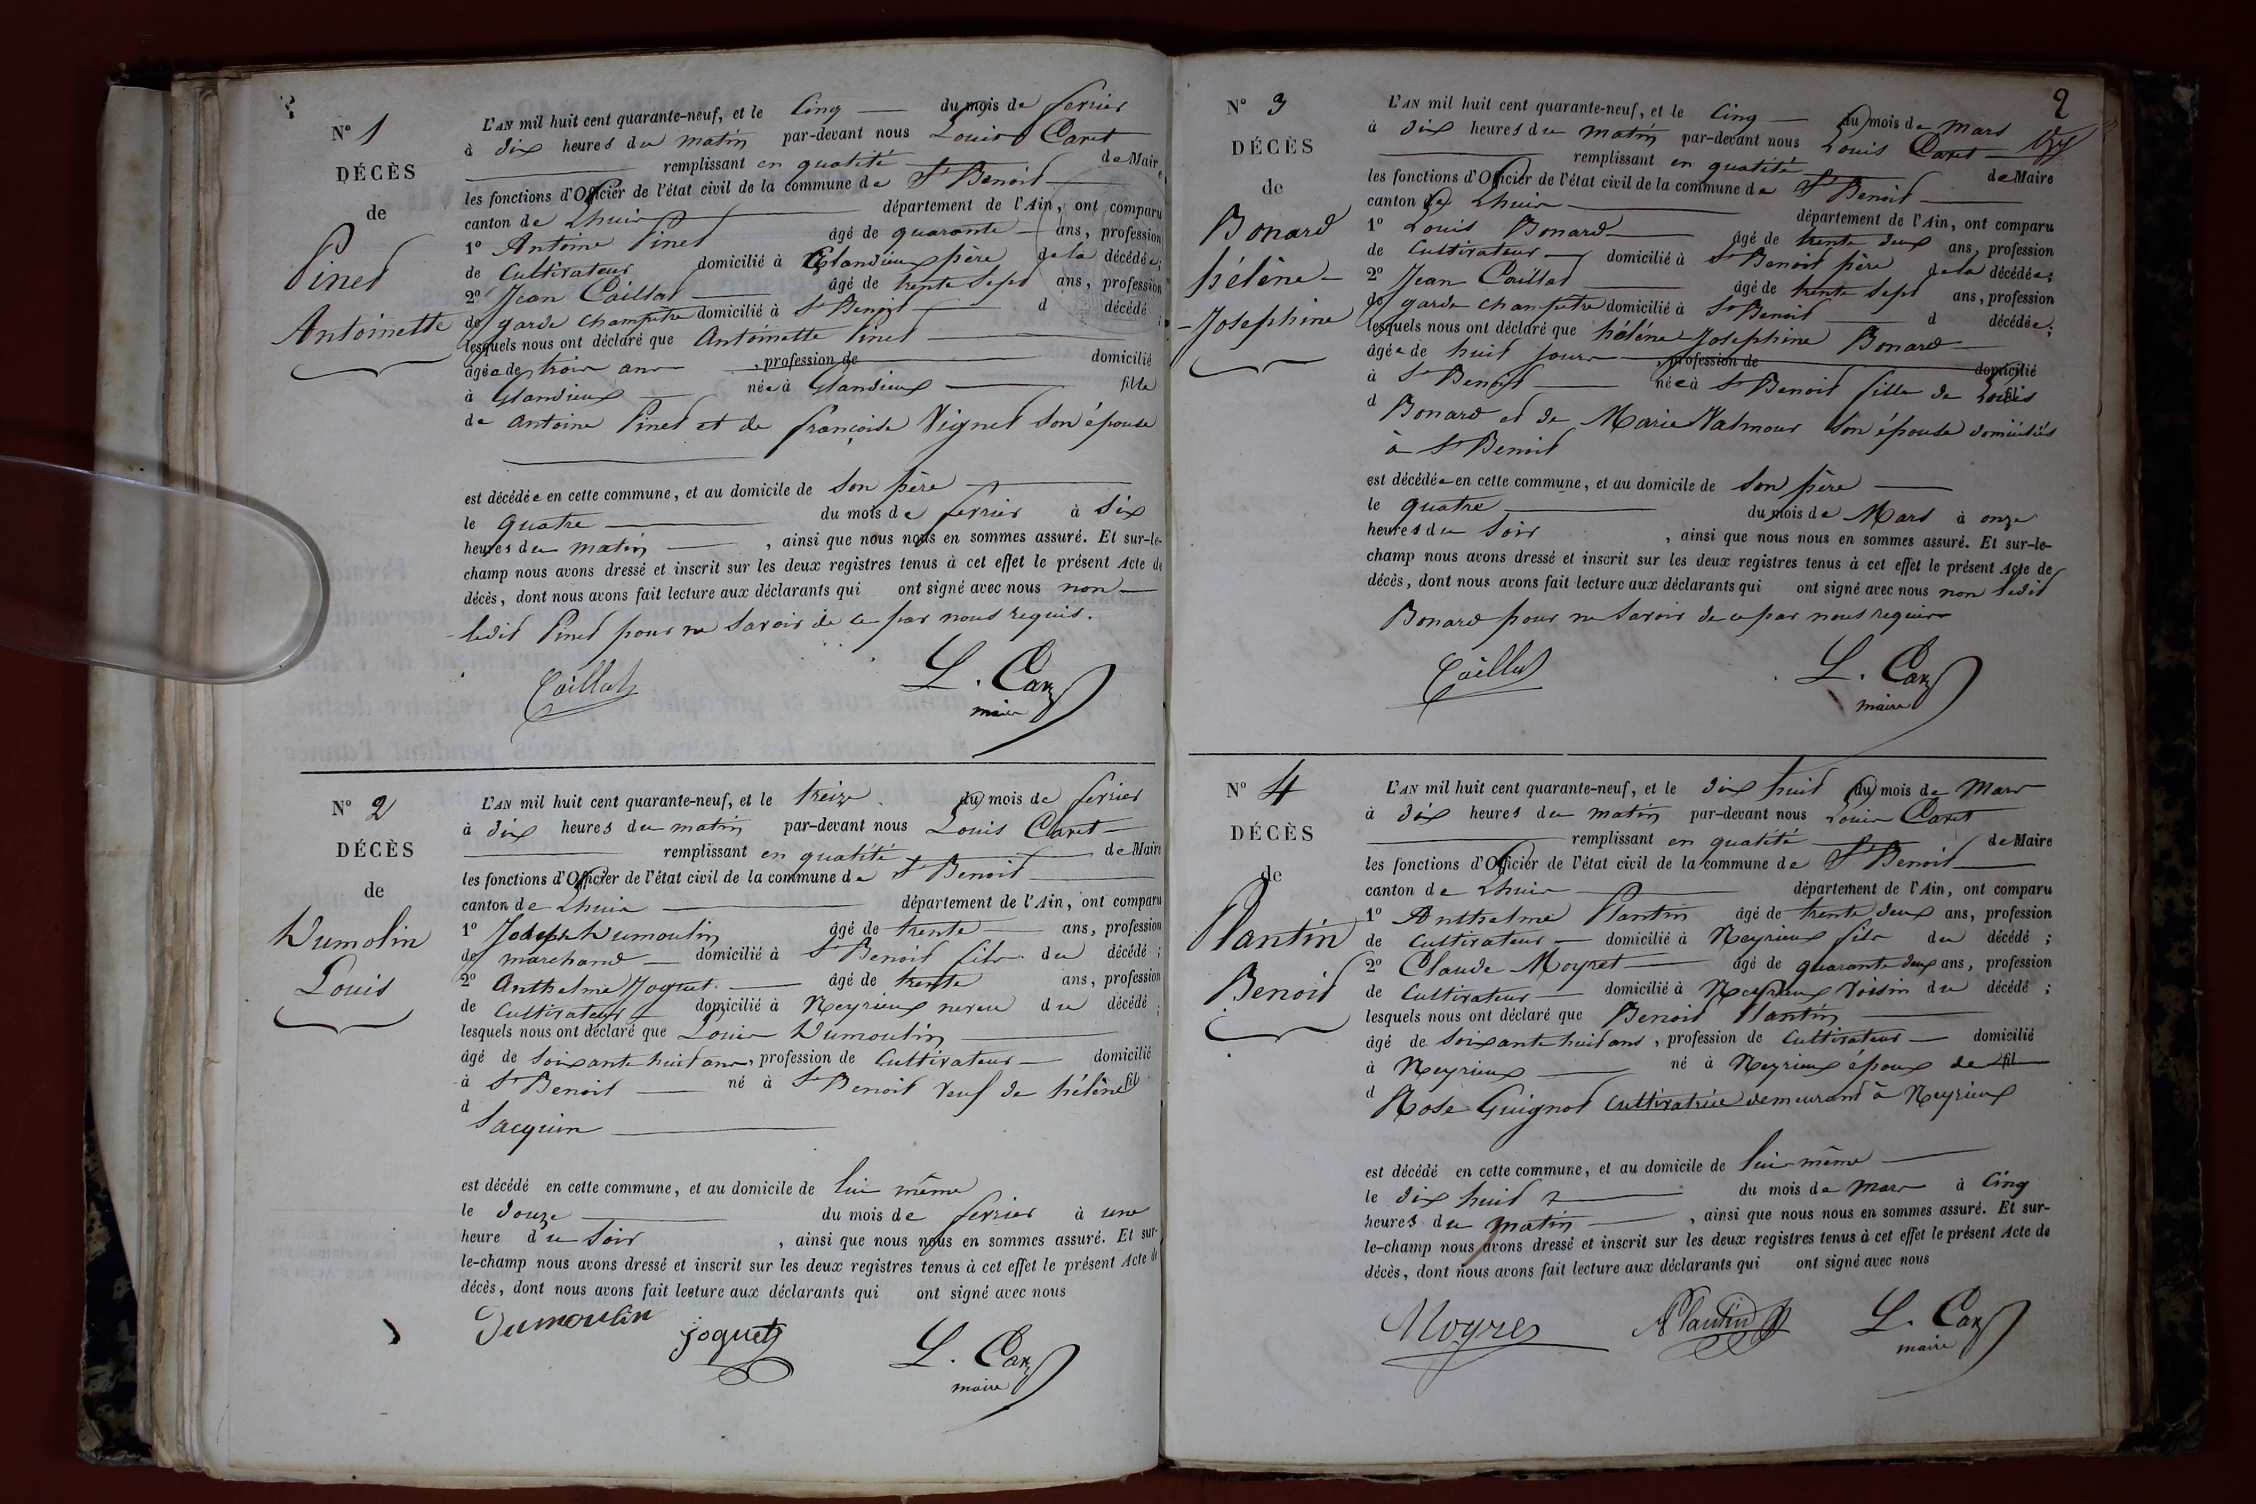 N° 1
DÉCÈS
de
Pinet
Antoinette
L'AN mil huit cent quarante-neuf, et le Cinq du mois de fevrier
à dix heures du matin par-devant nous Louis Caret
remplissant en qualité de Maire
les fonctions d'Officier de l'état civil de la commune de St Benoit
canton de Lhuis département de l'Ain, ont comparu
1° Antoine Pinet âgé de quarante ans, profession
de Cultivateur domicilié à Glandieux père de la décédée;
2° Jean Caillat âgé de trente Sept ans, profession
de garde champetre domicilié à St Benoit d décédé ;
lesquels nous ont déclaré que Antoinette Pinet
âgée de trois ans , profession de domicilié
à Glandieux née à Glandieux fille
de Antoine Pinet et de françoise Vignet Son épouse
est décédée en cette commune, et au domicile de Son père
le quatre du mois de fevrier à Six
heures du matin , ainsi que nous nous en sommes assuré. Et sur-le-
champ nous avons dressé et inscrit sur les deux registres tenus à cet effet le présent Acte de
décès, dont nous avons fait lecture aux déclarants qui ont signé avec nous non
ledit Pinet pour ne Savoir de ce par nous requis.
Caillat L. Caret
maire
N° 2
DÉCÈS
de
Dumolin
Louis
L'AN mil huit cent quarante-neuf, et le treize du mois de fevrier
à dix heures du matin par-devant nous Louis Caret
remplissant en qualité de Maire
les fonctions d'Officier de l'état civil de la commune de St Benoit
canton de Lhuis département de l'Ain, ont comparu
1° Joseph Dumoulin âgé de trente ans, profession
de marchand domicilié à St Benoit fils du décédé ;
2° Anthelme Joguet âgé de trente ans, profession
de Cultivateur domicilié à Neyrieux neveu du décédé ;
lesquels nous ont déclaré que Louis Dumoulin
âgé de Soixante huit ans, profession de Cultivateur domicilié
à St Benoit né à St Benoit veuf de hélène fil
d Sacquin
est décédé en cette commune, et au domicile de lui même
le douze du mois de fevrier à une
heure du Soir , ainsi que nous nous en sommes assuré. Et sur-
le-champ nous avons dressé et inscrit sur les deux registres tenus à cet effet le présent Acte de
décès, dont nous avons fait lecture aux déclarants qui ont signé avec nous
Dumoulin Joguet L. Caret
maire
2
N° 3
DÉCÈS
de
Bonard
hélène
Josephine
L'AN mil huit cent quarante-neuf, et le Cinq du mois de Mars
à dix heures du matin par-devant nous Louis Caret
remplissant en qualité de Maire
les fonctions d'Officier de l'état civil de la commune de St Benoit
canton de Lhuis département de l'Ain, ont comparu
1° Louis Bonard âgé de trente deux ans, profession
de Cultivateur domicilié à St Benoit père de la décédée;
2° Jean Caillat âgé de trente Sept ans, profession
de garde champetre domicilié à St Benoit d décédée;
lesquels nous ont déclaré que hélène Josephine Bonard
âgée de huit jours , profession de domicilié
à St Benoit née à St Benoit fille de Louis fil
d Bonard et de Marie Valmour Son épouse domiciliés
à St Benoit
est décédée en cette commune, et au domicile de Son père
le quatre du mois de Mars à onze
heures du Soir , ainsi que nous nous en sommes assuré. Et sur-le-
champ nous avons dressé et inscrit sur les deux registres tenus à cet effet le présent Acte de
décès, dont nous avons fait lecture aux déclarants qui ont signé avec nous non ledit
Bonard pour ne Savoir de ce par nous requis
Caillat L. Caret
maire
N° 4
DÉCÈS
de
Plantin
Benoit
L'AN mil huit cent quarante-neuf, et le dix huit du mois de Mars
à dix heures du matin par-devant nous Louis Caret
remplissant en qualité de Maire
les fonctions d'Officier de l'état civil de la commune de St Benoit
canton de Lhuis département de l'Ain, ont comparu
1° Anthelme Plantin âgé de trente deux ans, profession
de Cultivateur domicilié à Neyrieux fils du décédé ;
2° Claude Moyret âgé de quarante deux ans, profession
de Cultivateur domicilié à Neyrieux voisin du décédé ;
lesquels nous ont déclaré que Benoit Plantin
âgé de Soixante huit ans , profession de Cultivateur domicilié
à Neyrieux né à Neyrieux époux de fil
d Rose Guignot Cultivatrice demeurant à Neyrieux
est décédé en cette commune, et au domicile de lui même
le dix huit du mois de Mars à Cinq
heures du matin , ainsi que nous nous en sommes assuré. Et sur-
le-champ nous avons dressé et inscrit sur les deux registres tenus à cet effet le présent Acte de
décès, dont nous avons fait lecture aux déclarants qui ont signé avec nous
Moyret Plantin L. Caret
maire